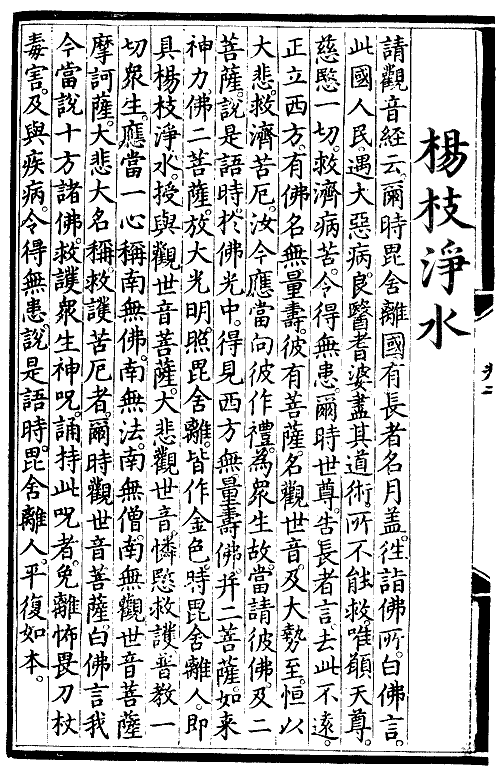 楊枝淨水
請觀音經云。爾時毘舍離國有長者名月盖。徃詣佛所。白佛言。
此國人民遇大惡病。良醫耆婆盡其道術。所不能救。唯願天尊。
慈愍一切。救濟病苦。令得無患。爾時世尊。告長者言。去此不遠。
正立西方。有佛名無量壽。彼有菩薩。名觀世音。及大勢至。恒以
大悲。救濟苦厄。汝今應當向彼作禮。為眾生故。當請彼佛。及二
菩薩。說是語時。於佛光中。得見西方無量壽佛。并二菩薩。如来
神力佛二菩薩。放大光明。照毘舍離。皆作金色。時毘舍離人。即
具楊枝淨水。授與觀世音菩薩。大悲觀世音。憐愍救護。普教一
切眾生。應當一心稱南無佛。南無法。南無僧。南無觀世音菩薩
摩訶薩。大悲大名稱。救護苦厄者。爾時觀世音菩薩。白佛言我
今當說十方諸佛。救護眾生神呪。誦持此呪者。免離怖畏刀杖
毒害。及與疾病。令得無患。說是語時。毘舍離人。平復如本。